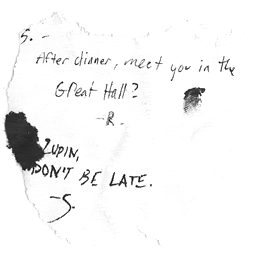 S. -
After dinner, meet you in the
Great Hall?
-R.
LUPIN,
DON'T BE LATE.
-S.